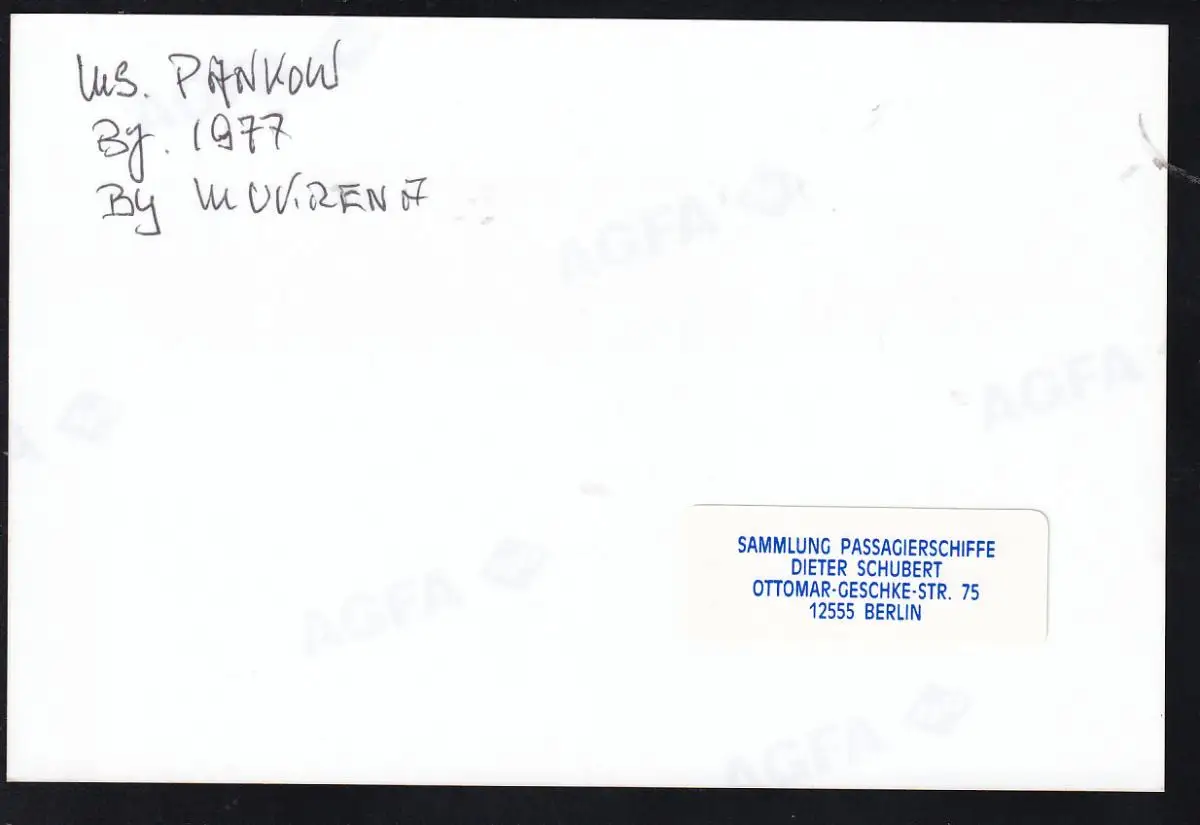 MS. PANKOW
Bj. 1977
By MUVIRENA
AGFA
AGFA
AGFA
AGFA
SAMMLUNG PASSAGIERSCHIFFE
DIETER SCHUBERT
OTTOMAR-GESCHKE-STR. 75
12555 BERLIN